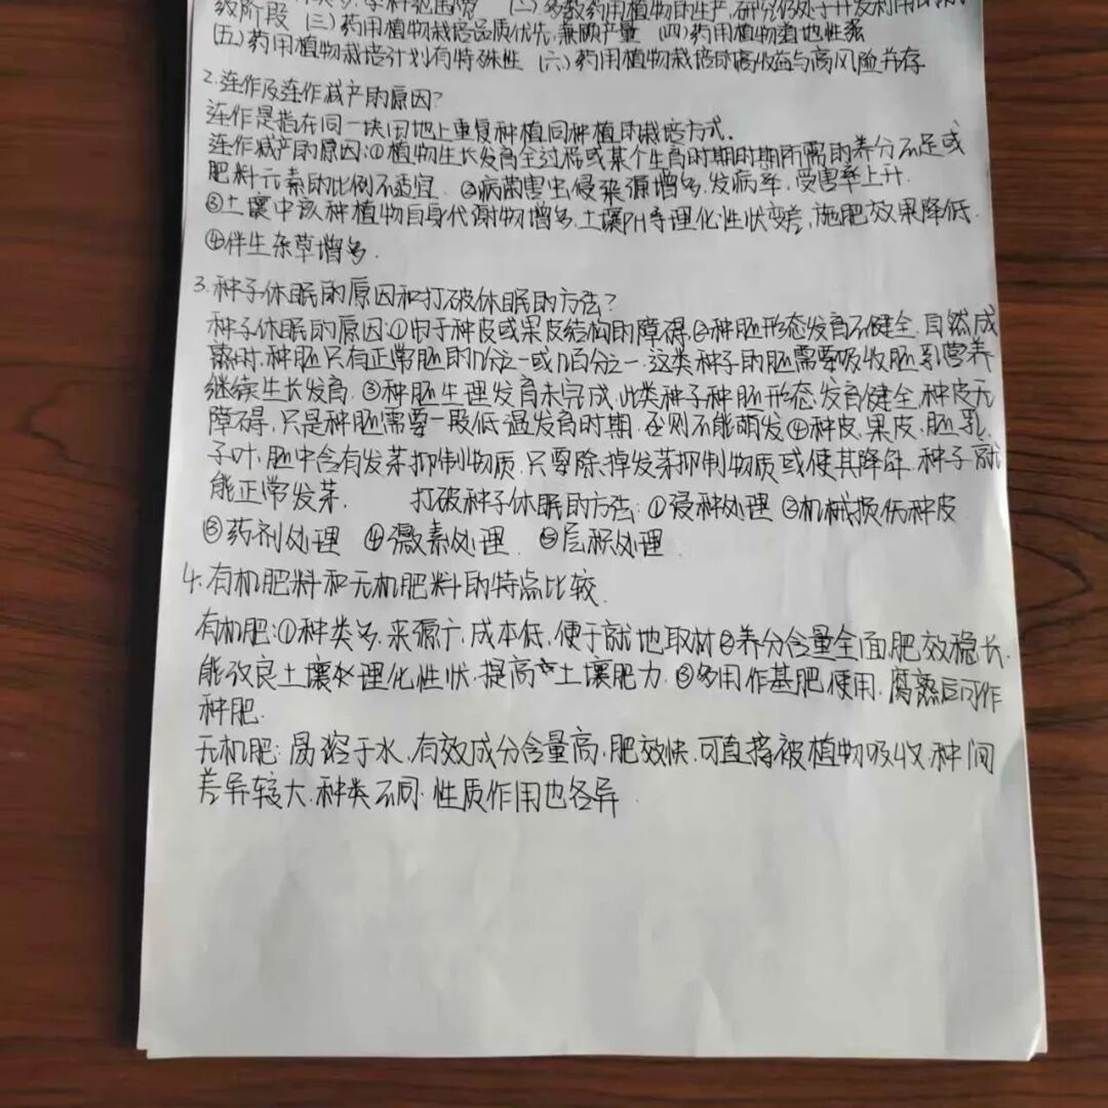 种类多,学科范围广 (二)多数药用植物的生产,研究仍处于开发利用的初
级阶段 (三)药用植物栽培品质优先,兼顾产量 (四)药用植物道地性强
(五)药用植物栽培计划有特殊性 (六)药用植物栽培的高收益与高风险并存
2.连作及连作减产的原因?
连作是指在同一块田地上重复种植同种植的栽培方式.
连作减产的原因:①植物生长发育全过程或某个生育时期时期所需的养分不足或
肥料元素的比例不适宜. ②病菌害虫侵染源增多,发病率,受害率上升.
③土壤中该种植物自身代谢物增多,土壤PH等理化性状变差,施肥效果降低.
④伴生杂草增多.
3.种子休眠的原因和打破休眠的方法?
种子休眠的原因:①由于种皮或果皮结构的障碍.②种胚形态发育不健全.自然成
熟时,种胚只有正常胚的几分之一或几百分之一.这类种子的胚需要吸收胚乳营养
继续生长发育.③种胚生理发育未完成.此类种子种胚形态发育健全,种皮无
障碍,只是种胚需要一段低温发育时期.否则不能萌发④种皮,果皮,胚乳,
子叶,胚中含有发芽抑制物质.只要除掉发芽抑制物质或使其降解,种子就
能正常发芽. 打破种子休眠的方法:①浸种处理 ②机械损伤种皮
③药剂处理 ④激素处理. ⑤层积处理.
4.有机肥料和无机肥料的特点比较.
有机肥:①种类多,来源广,成本低,便于就地取材②养分含量全面肥效稳长.
能改良土壤理化性状,提高土壤肥力.③多用作基肥使用,腐熟后可作
种肥.
无机肥:易溶于水,有效成分含量高,肥效快.可直接被植物吸收,种间
差异较大.种类不同.性质作用也各异.